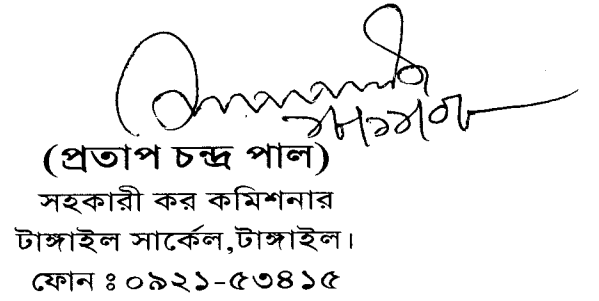 (প্রতাপ চন্দ্র পাল)
সহকারী কর কমিশনার
টাঙ্গাইল সার্কেল,টাঙ্গাইল।
ফোন ঃ ০৯২১-৫৩৪১৫